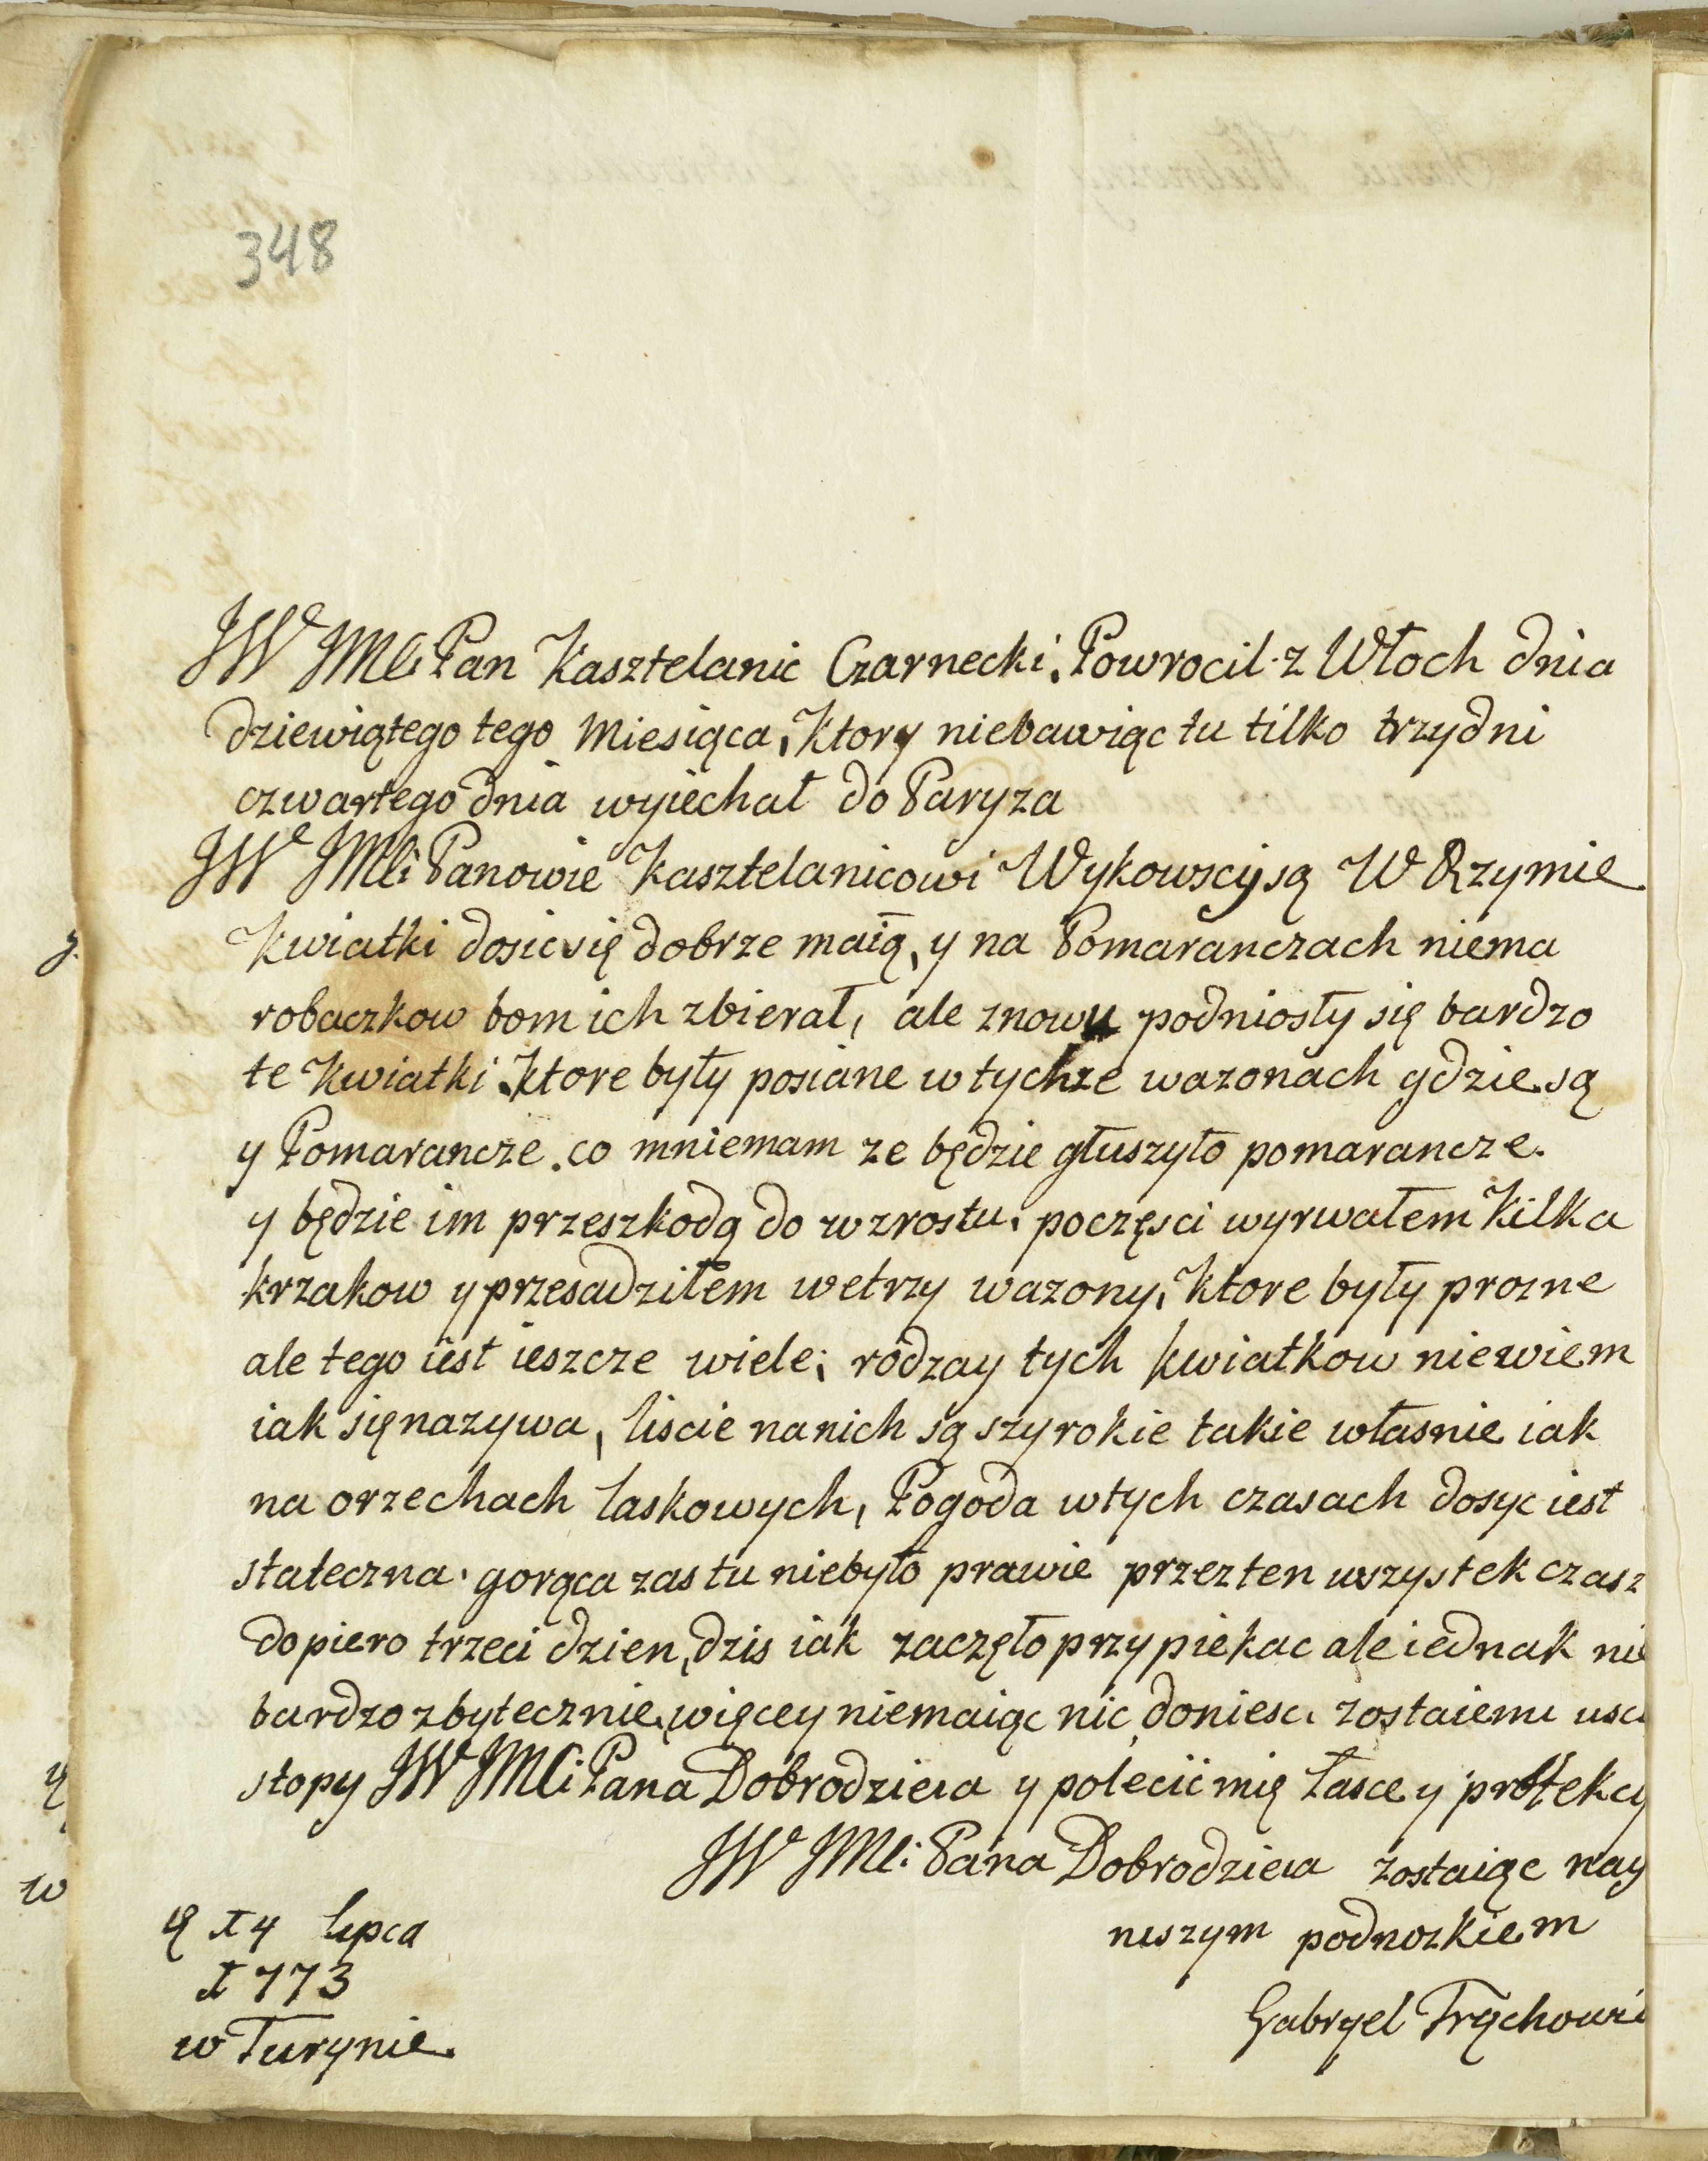 348
JWᵉ JMCi Pan Kasztelanic Czarnecki. Powrocil z Włoch dnia
dziewiątego tego Miesiąca, Ktory niebawiąc tu tilko trzy dni
czwartego dnia wyiechał do Paryza
JWᵉ JMCi Panowie Kasztelanicowi Wykowscy są W Rzymie
Kwiatki dosic się dobrze maią, y na Pomaranczach niema
robaczkow bom ich zbierał, ale znowu podniosły się bardzo
te Kwiatki Ktore były posiane w tychze wazonach gdzie są
y Pomarancze. co mniemam ze będzie głuszyło pomarancze.
y będzie im przeszkodą do wzrostu, poczęsci wyrwałem Kilka
krzakow y przesadziłem wetrzy wazony, Ktore były prozne
ale tego iest ieszcze wiele; rodzay tych kwiatkow niewiem
iak się nazywa, liscie na nich są szyrokie takie własnie iak
na orzechach laskowych, Pogoda w tych czasach dosyc iest
stateczna. gorąca zas tu niebyło prawie przez ten wszystek czas z
dopiero trzeci dzien, dzis iak zaczęło przypiekac ale iednak nie
bardzo zbytecznie, więcey niemaiąc nic doniesc. zostaiemi usc
stopy JWᵉ JMCi Pana Dobrodzieia y polecic mię Łasce y protekcy
JWᵉ JMCi Pana Dobrodzieia zostaiąc nay
niszym podnozkiem
14 lipca
1773
w Turynie.
Gabryel
y
w